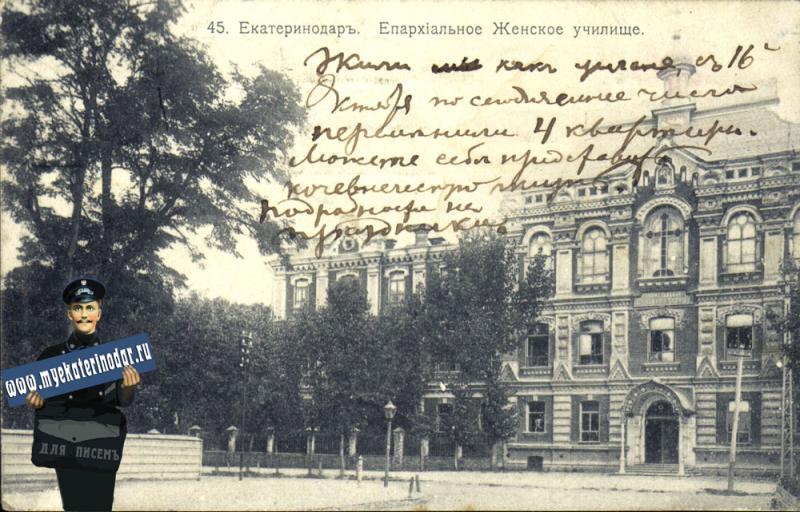 45. Екатеринодаръ. Епархіальное Женское училище.
Жили мы какъ цыгане, съ 16
Октября по сегодняшнее число
перемѣнили 4 квартиры.
Можете себѣ представить
кочевническую жизнь
подробности на
праздникахъ
www.myekaterinodar.ru
ДЛЯ ПИСЕМЪ